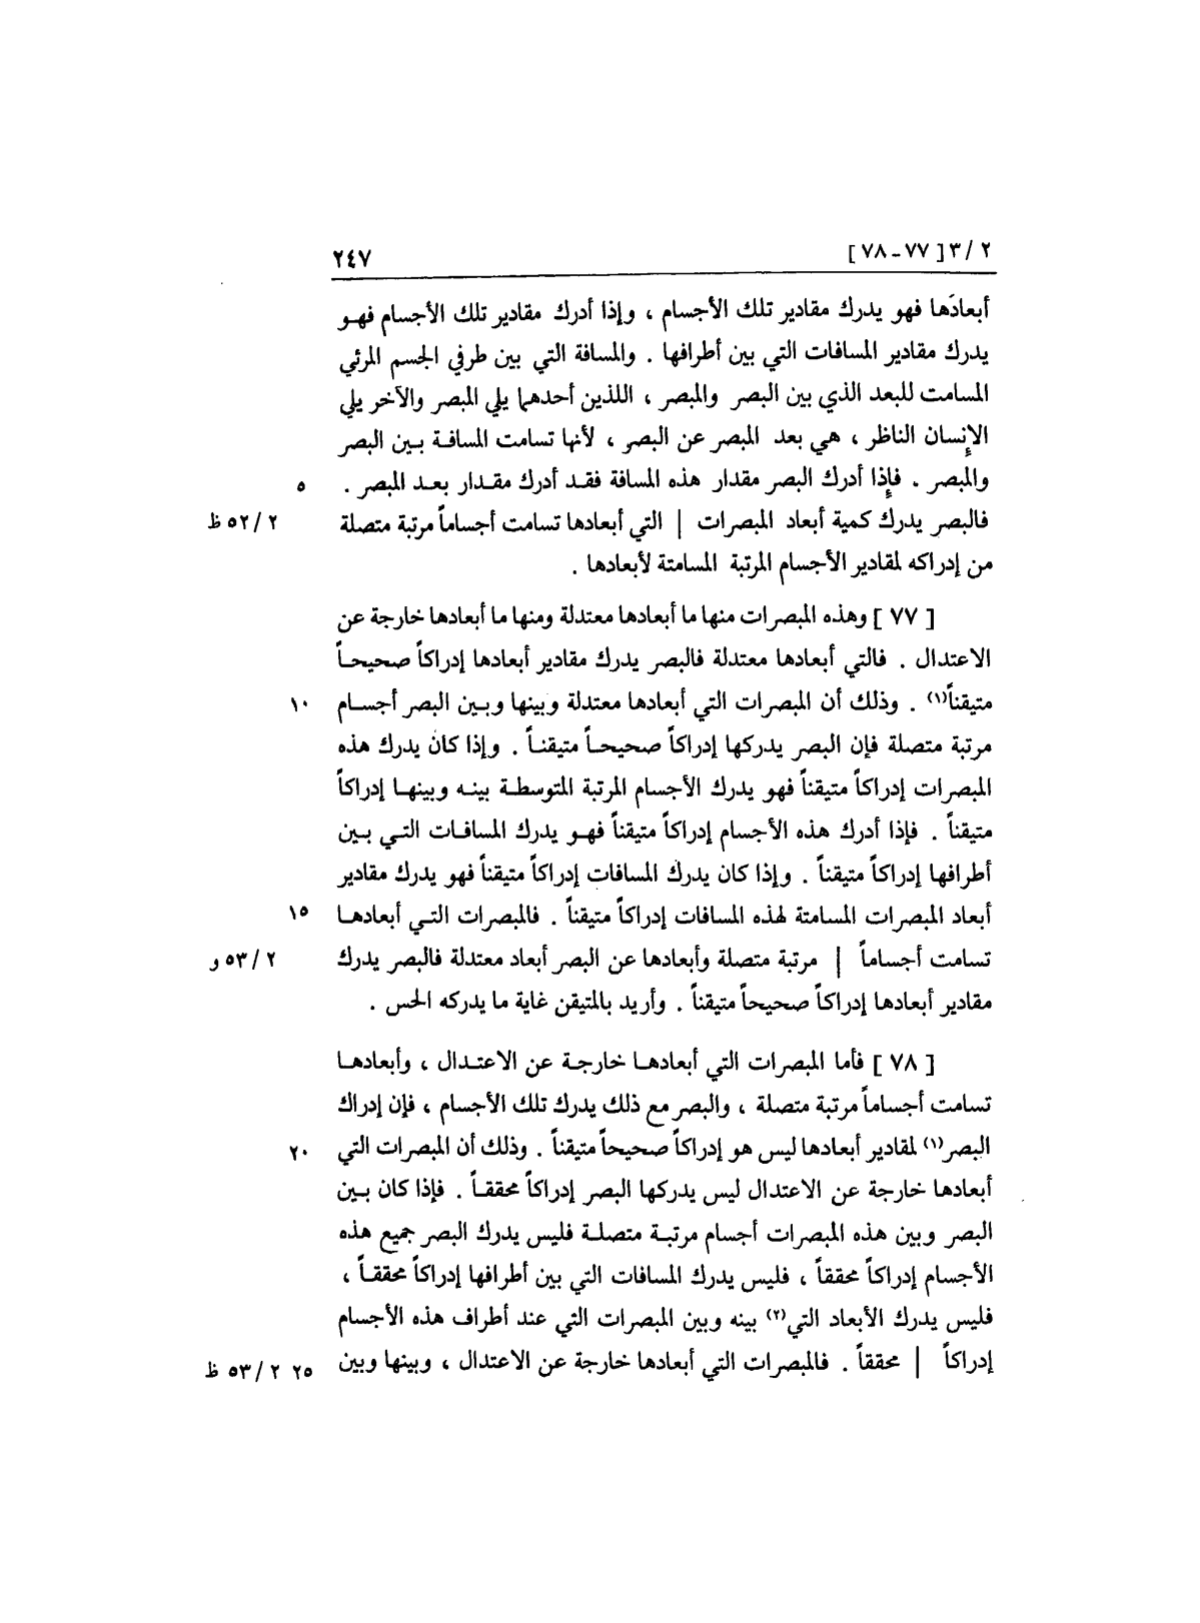 ٢ /٣ [ ٧٧ - ٧٨ ] ٢٤٧
أبعادَها فهو يدرك مقادير تلك الأجسام ، وإذا أدرك مقادير تلك الأجسام فهـو
يدرك مقادير المسافات التي بين أطرافها . والمسافة التي بين طرفي الجسم المرئي
المسامت للبعد الذي بين البصر والمبصر ، اللذين أحدهما يلي المبصر والآخر يلي
الإنسان الناظر ، هي بعد المبصر عن البصر ، لأنها تسامت المسافـة بـين البصر
والمبصر . فإذا أدرك البصر مقدار هذه المسافة فقـد أدرك مقـدار بعـد المبصر . ٥
فالبصر يدرك كمية أبعاد المبصرات | التي أبعادها تسامت أجساماً مرتبة متصلة ٢ /٥٢ ظ
من إدراكه لمقادير الأجسام المرتبة المسامتة لأبعادها .
[ ٧٧ ] وهذه المبصرات منها ما أبعادها معتدلة ومنها ما أبعادها خارجة عن
الاعتدال . فالتي أبعادها معتدلة فالبصر يدرك مقادير أبعادها إدراكاً صحيحـاً
متيقناً(١) . وذلك أن المبصرات التي أبعادها معتدلة وبينها وبـين البصر أجسـام ١٠
مرتبة متصلة فإن البصر يدركها إدراكاً صحيحـاً متيقنـاً . وإذا كان يدرك هذه
المبصرات إدراكاً متيقناً فهو يدرك الأجسام المرتبة المتوسطـة بينـه وبينهـا إدراكاً
متيقناً . فإذا أدرك هذه الأجسام إدراكاً متيقناً فهـو يدرك المسافـات التـي بـين
أطرافها إدراكاً متيقناً . وإذا كان يدرك المسافات إدراكاً متيقناً فهو يدرك مقادير
أبعاد المبصرات المسامتة لهذه المسافات إدراكاً متيقناً . فالمبصرات التـي أبعادهـا ١٥
تسامت أجساماً | مرتبة متصلة وأبعادها عن البصر أبعاد معتدلة فالبصر يدرك ٢ /٥٣ و
مقادير أبعادها إدراكاً صحيحاً متيقناً . وأريد بالمتيقن غاية ما يدركه الحس .
[ ٧٨ ] فأما المبصرات التي أبعادهـا خارجـة عن الاعتـدال ، وأبعادهـا
تسامت أجساماً مرتبة متصلة ، والبصر مع ذلك يدرك تلك الأجسام ، فإن إدراك
البصر(١) لمقادير أبعادها ليس هو إدراكاً صحيحاً متيقناً . وذلك أن المبصرات التي ٢٠
أبعادها خارجة عن الاعتدال ليس يدركها البصر إدراكاً محققـاً . فإذا كان بـين
البصر وبين هذه المبصرات أجسام مرتبـة متصلـة فليس يدرك البصر جميع هذه
الأجسام إدراكاً محققاً ، فليس يدرك المسافات التي بين أطرافها إدراكاً محققـاً ،
فليس يدرك الأبعاد التي(٢) بينه وبين المبصرات التي عند أطراف هذه الأجسام
إدراكاً | محققاً . فالمبصرات التي أبعادها خارجة عن الاعتدال ، وبينها وبين ٢٥ ٢ /٥٣ ظ